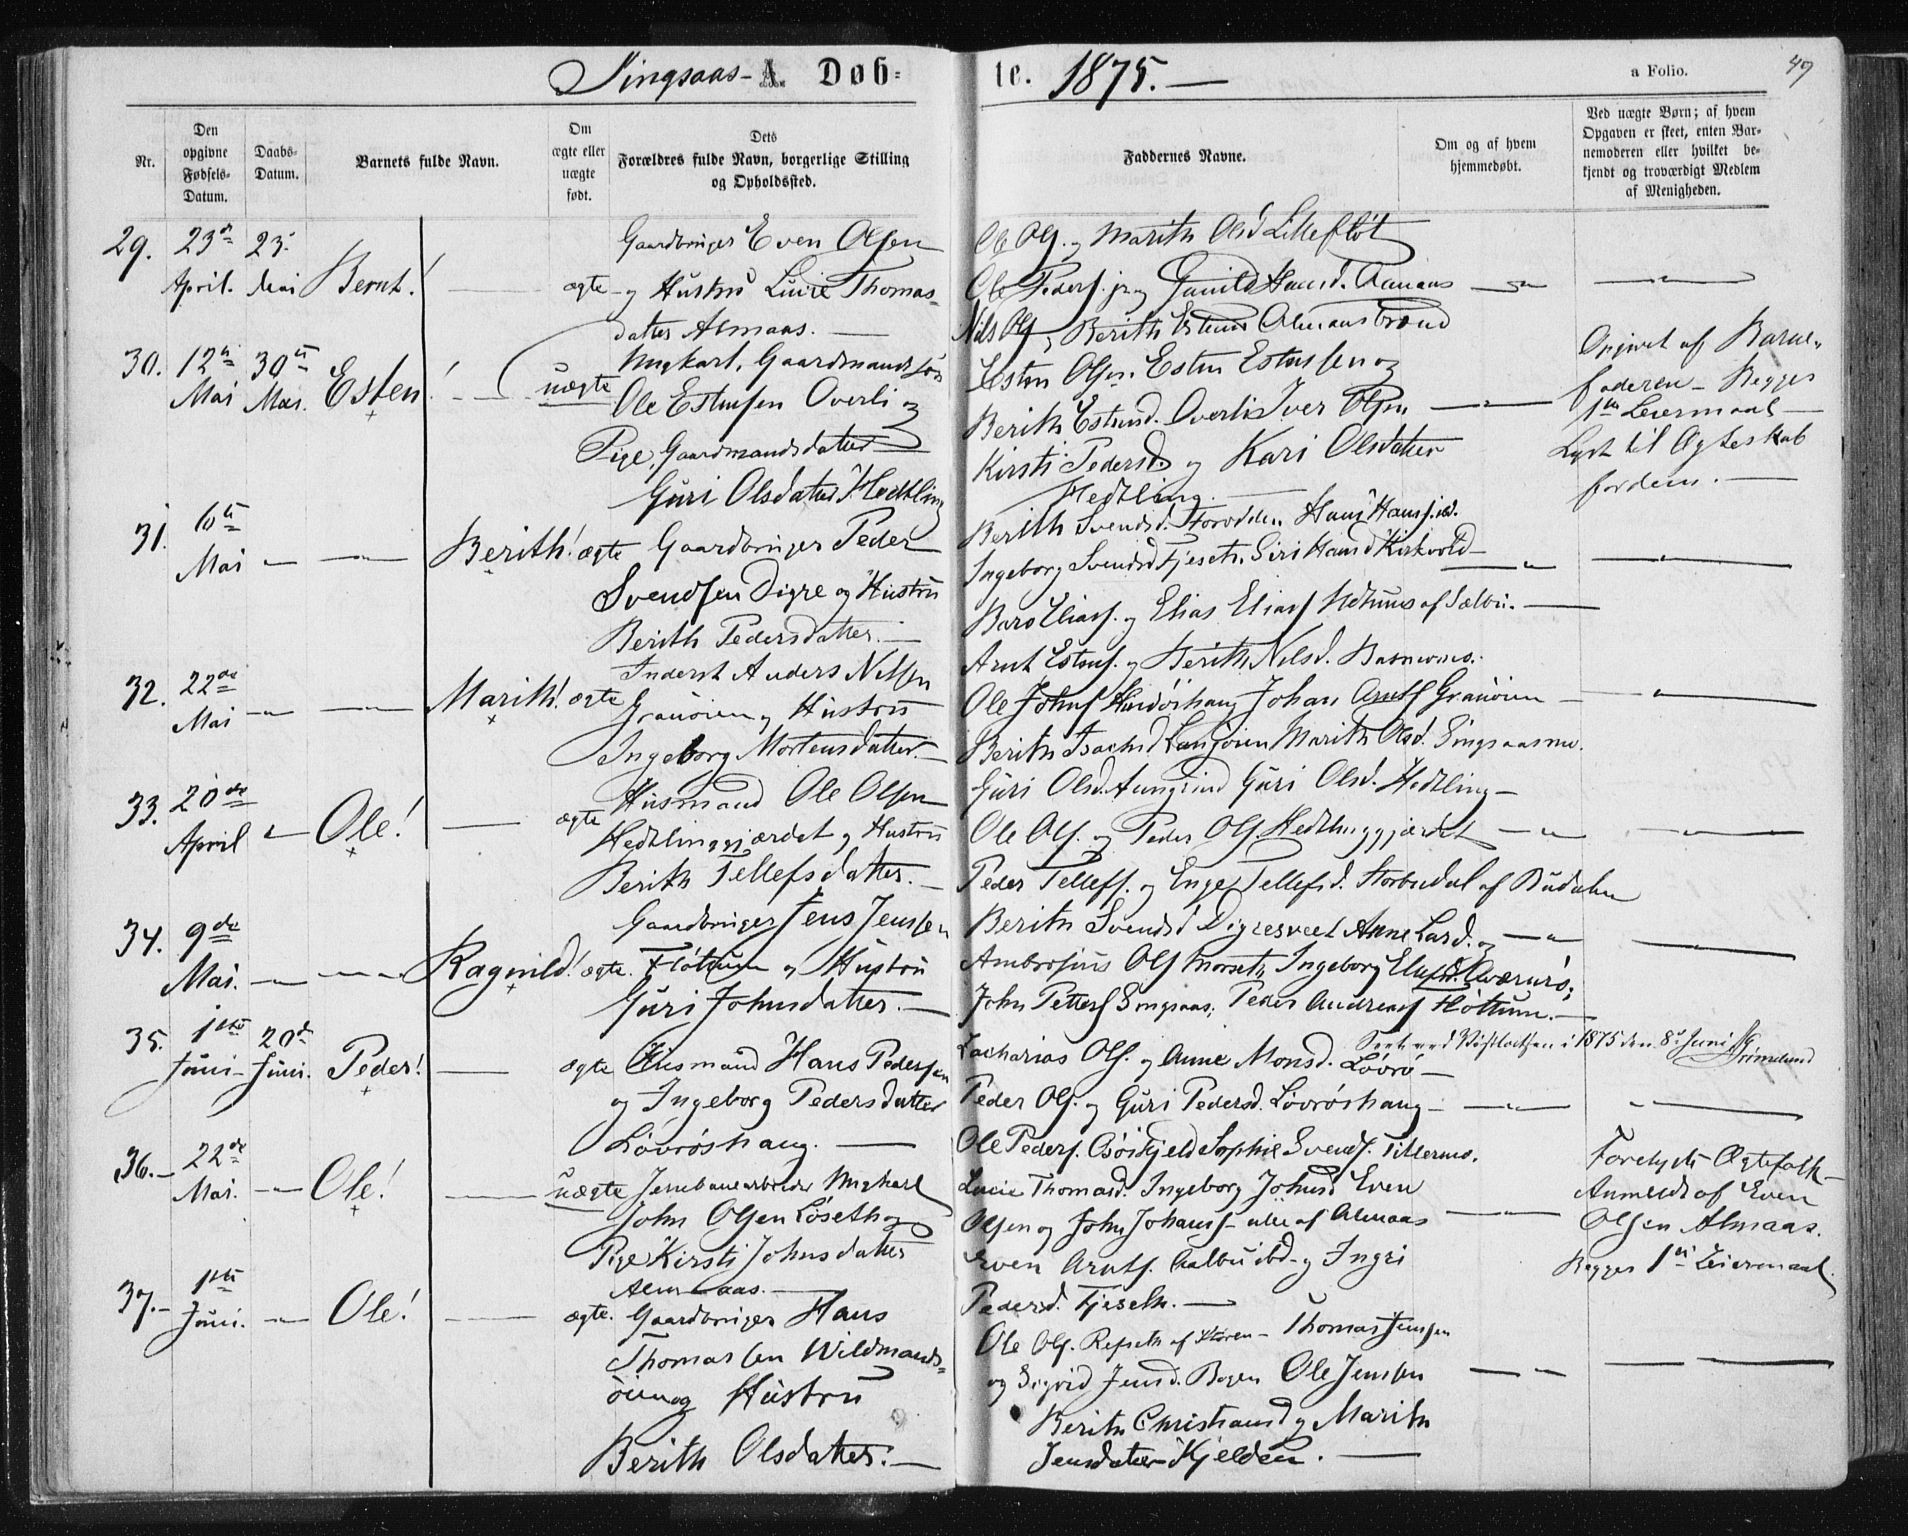 Singsaas - A. Døb-
te. 1875.-
a Folio.
49
Nr.
Den opgivne Fødsels-Datum.
Daabs-Datum.
Barnets fulde Navn.
Om ægte eller uægte født.
Dets Forældres fulde Navn, borgerlige Stilling og Opholdssted.
Faddernes Navne.
Om og af hvem hjemmedøbt.
Ved uægte Børn; af hvem Opgaven er skeet, enten Barnemoderen eller hvilket bekjendt og troværdigt Medlem af Menigheden.
29. 23de April. 23. Mai Bernt! ægte
Gaardbruger Even Olsen
og Hustru Lucie Thomas-
datter Almaas.
Ole Ols. og Marith Olsd Lillefløt
Ole Peders. jr. og Gunild Hansd. Almaas
Nils Ols og Berith Estensd Almaasbrænd
30. 12te Mai 30te Mai. Esten! uægte
Ungkarl, Gaardmandssøn
Ole Estensen Overli og
Pige, Gaardmandsdatter
Guri Olsdatter Hedtling
Esten Olsen, Esten Estensen og
Berith Estensd. Overli Iver Olsen
Kirsti Pedersd. og Kari Olsdatter
Hedtling.
Opgivet af Barne-
faderen - Begges
1ste Leiermaal
Lyst til Ægteskab
fordem.
31. 10de Mai Berith! ægte
Gaardbruger Peder
Svendsen Digre og Hustru
Berith Pedersdatter.
Berith Svendsd. Storodden Hans Hans
Ingeborg Svendsd Fjeseth, Siri Hansd Kirkvold
Baro Elias. og Elias Elias af Sælbu.
32. 22de Mai Marith! ægte
Inderst Anders Nilsen
Granøien og Hustru
Ingeborg Mortensdatter.
Arnt Estens. og Berith Nilsd.
Ole Johns Johan Arnts Granøien
Berith Isachsd Langøien Marith Olsd. Singsaas
33. 20de April Ole! ægte
Husmand Ole Olsen
Hedtlinggjærdet og Hustru
Berith Tellefsdatter.
Guri Olsd. Guri Olsd. Hedtling
Ole Ols. og Peder Ols. Hedtlinggjærdet
Peder Tellefs. og Enge Tellefsd. Storbudal af Budalen
34. 9de Mai. Ragnild! ægte.
Gaardbruger Jens Jenssen
Fløttum og Hustru
Guri Johnsdatter.
Berith Svendsd Digresveet Anne Larsd. og
Ambrosius Ols Morseth, Ingeborg
John Petters Singsaas, Peder Andreas Fløttum.
i 1875 den 8de Juni Grimelund
35. 1ste Juni 20de Juni. Peder! ægte
Husmand Hans Pedersen
og Ingeborg Pedersdatter
Løvrøshaug.
Zacharias Ols. og Anne Monsd. Løvrø
Peder Ols. og Guri Pedersd. Løvrøshaug
Ole Peders. Sophie Svends. Tillermo.
36. 22de Mai. Ole! uægte
Jernbanearbeider Ungkarl
John Olsen Løseth og
Pige Kirsti Johnsdatter
Almaas.
Lucie Thomasd. Ingeborg Johnsd Even
Olsen og John Johans alle af Almaas
Even Arnts. Aalbu ibd. og Ingri
Pedersd. Fjeseth.
Forelyste Ægtefolk
Anmeldt af Even
Olsen Almaas.
Begges 1ste Leiermaal.
37. 1ste Juni. Ole! ægte.
Gaardbruger Hans
Thomassen Wildmands-
øien og Hustru
Berith Olsdatter.
Ole Ols. Refseth af Støren - Thomas Jensen
og Sigrid Jensd. Bogen Ole Jensen
Berith Christiansd og Marith
Jensdatter Kjelden.